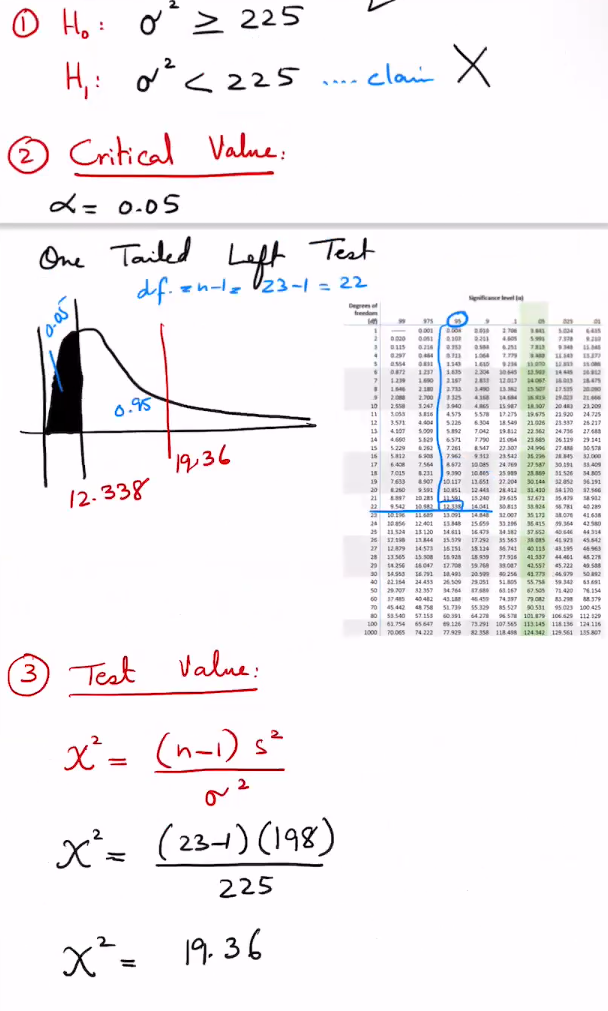 ① H₀: σ² ≥ 225
H₁: σ² < 225 .... claim X
② Critical Value:
α = 0.05
One Tailed Left Test
d.f. = n-1 = 23-1 = 22
0.05
0.95
19.36
12.338
Significance level (α)
Degrees of
freedom
(df) .99 .975 .95 .9 .1 .05 .025 .01
1 ---- 0.001 0.004 0.016 2.706 3.841 5.024 6.635
2 0.020 0.051 0.103 0.211 4.605 5.991 7.378 9.210
3 0.115 0.216 0.352 0.584 6.251 7.815 9.348 11.345
4 0.297 0.484 0.711 1.064 7.779 9.488 11.143 13.277
5 0.554 0.831 1.145 1.610 9.236 11.070 12.833 15.086
6 0.872 1.237 1.635 2.204 10.645 12.592 14.449 16.812
7 1.239 1.690 2.167 2.833 12.017 14.067 16.013 18.475
8 1.646 2.180 2.733 3.490 13.362 15.507 17.535 20.090
9 2.088 2.700 3.325 4.168 14.684 16.919 19.023 21.666
10 2.558 3.247 3.940 4.865 15.987 18.307 20.483 23.209
11 3.053 3.816 4.575 5.578 17.275 19.675 21.920 24.725
12 3.571 4.404 5.226 6.304 18.549 21.026 23.337 26.217
13 4.107 5.009 5.892 7.042 19.812 22.362 24.736 27.688
14 4.660 5.629 6.571 7.790 21.064 23.685 26.119 29.141
15 5.229 6.262 7.261 8.547 22.307 24.996 27.488 30.578
16 5.812 6.908 7.962 9.312 23.542 26.296 28.845 32.000
17 6.408 7.564 8.672 10.085 24.769 27.587 30.191 33.409
18 7.015 8.231 9.390 10.865 25.989 28.869 31.526 34.805
19 7.633 8.907 10.117 11.651 27.204 30.144 32.852 36.191
20 8.260 9.591 10.851 12.443 28.412 31.410 34.170 37.566
21 8.897 10.283 11.591 13.240 29.615 32.671 35.479 38.932
22 9.542 10.982 12.338 14.041 30.813 33.924 36.781 40.289
23 10.196 11.689 13.091 14.848 32.007 35.172 38.076 41.638
24 10.856 12.401 13.848 15.659 33.196 36.415 39.364 42.980
25 11.524 13.120 14.611 16.473 34.382 37.652 40.646 44.314
26 12.198 13.844 15.379 17.292 35.563 38.885 41.923 45.642
27 12.879 14.573 16.151 18.114 36.741 40.113 43.195 46.963
28 13.565 15.308 16.928 18.939 37.916 41.337 44.461 48.278
29 14.256 16.047 17.708 19.768 39.087 42.557 45.722 49.588
30 14.953 16.791 18.493 20.599 40.256 43.773 46.979 50.892
40 22.164 24.433 26.509 29.051 51.805 55.758 59.342 63.691
50 29.707 32.357 34.764 37.689 63.167 67.505 71.420 76.154
60 37.485 40.482 43.188 46.459 74.397 79.082 83.298 88.379
70 45.442 48.758 51.739 55.329 85.527 90.531 95.023 100.425
80 53.540 57.153 60.391 64.278 96.578 101.879 106.629 112.329
100 61.754 65.647 69.126 73.291 107.565 113.145 118.136 124.116
1000 70.065 74.222 77.929 82.358 118.498 124.342 129.561 135.807
③ Test Value:
χ² = (n-1) s² / σ²
χ² = (23-1)(198) / 225
χ² = 19.36